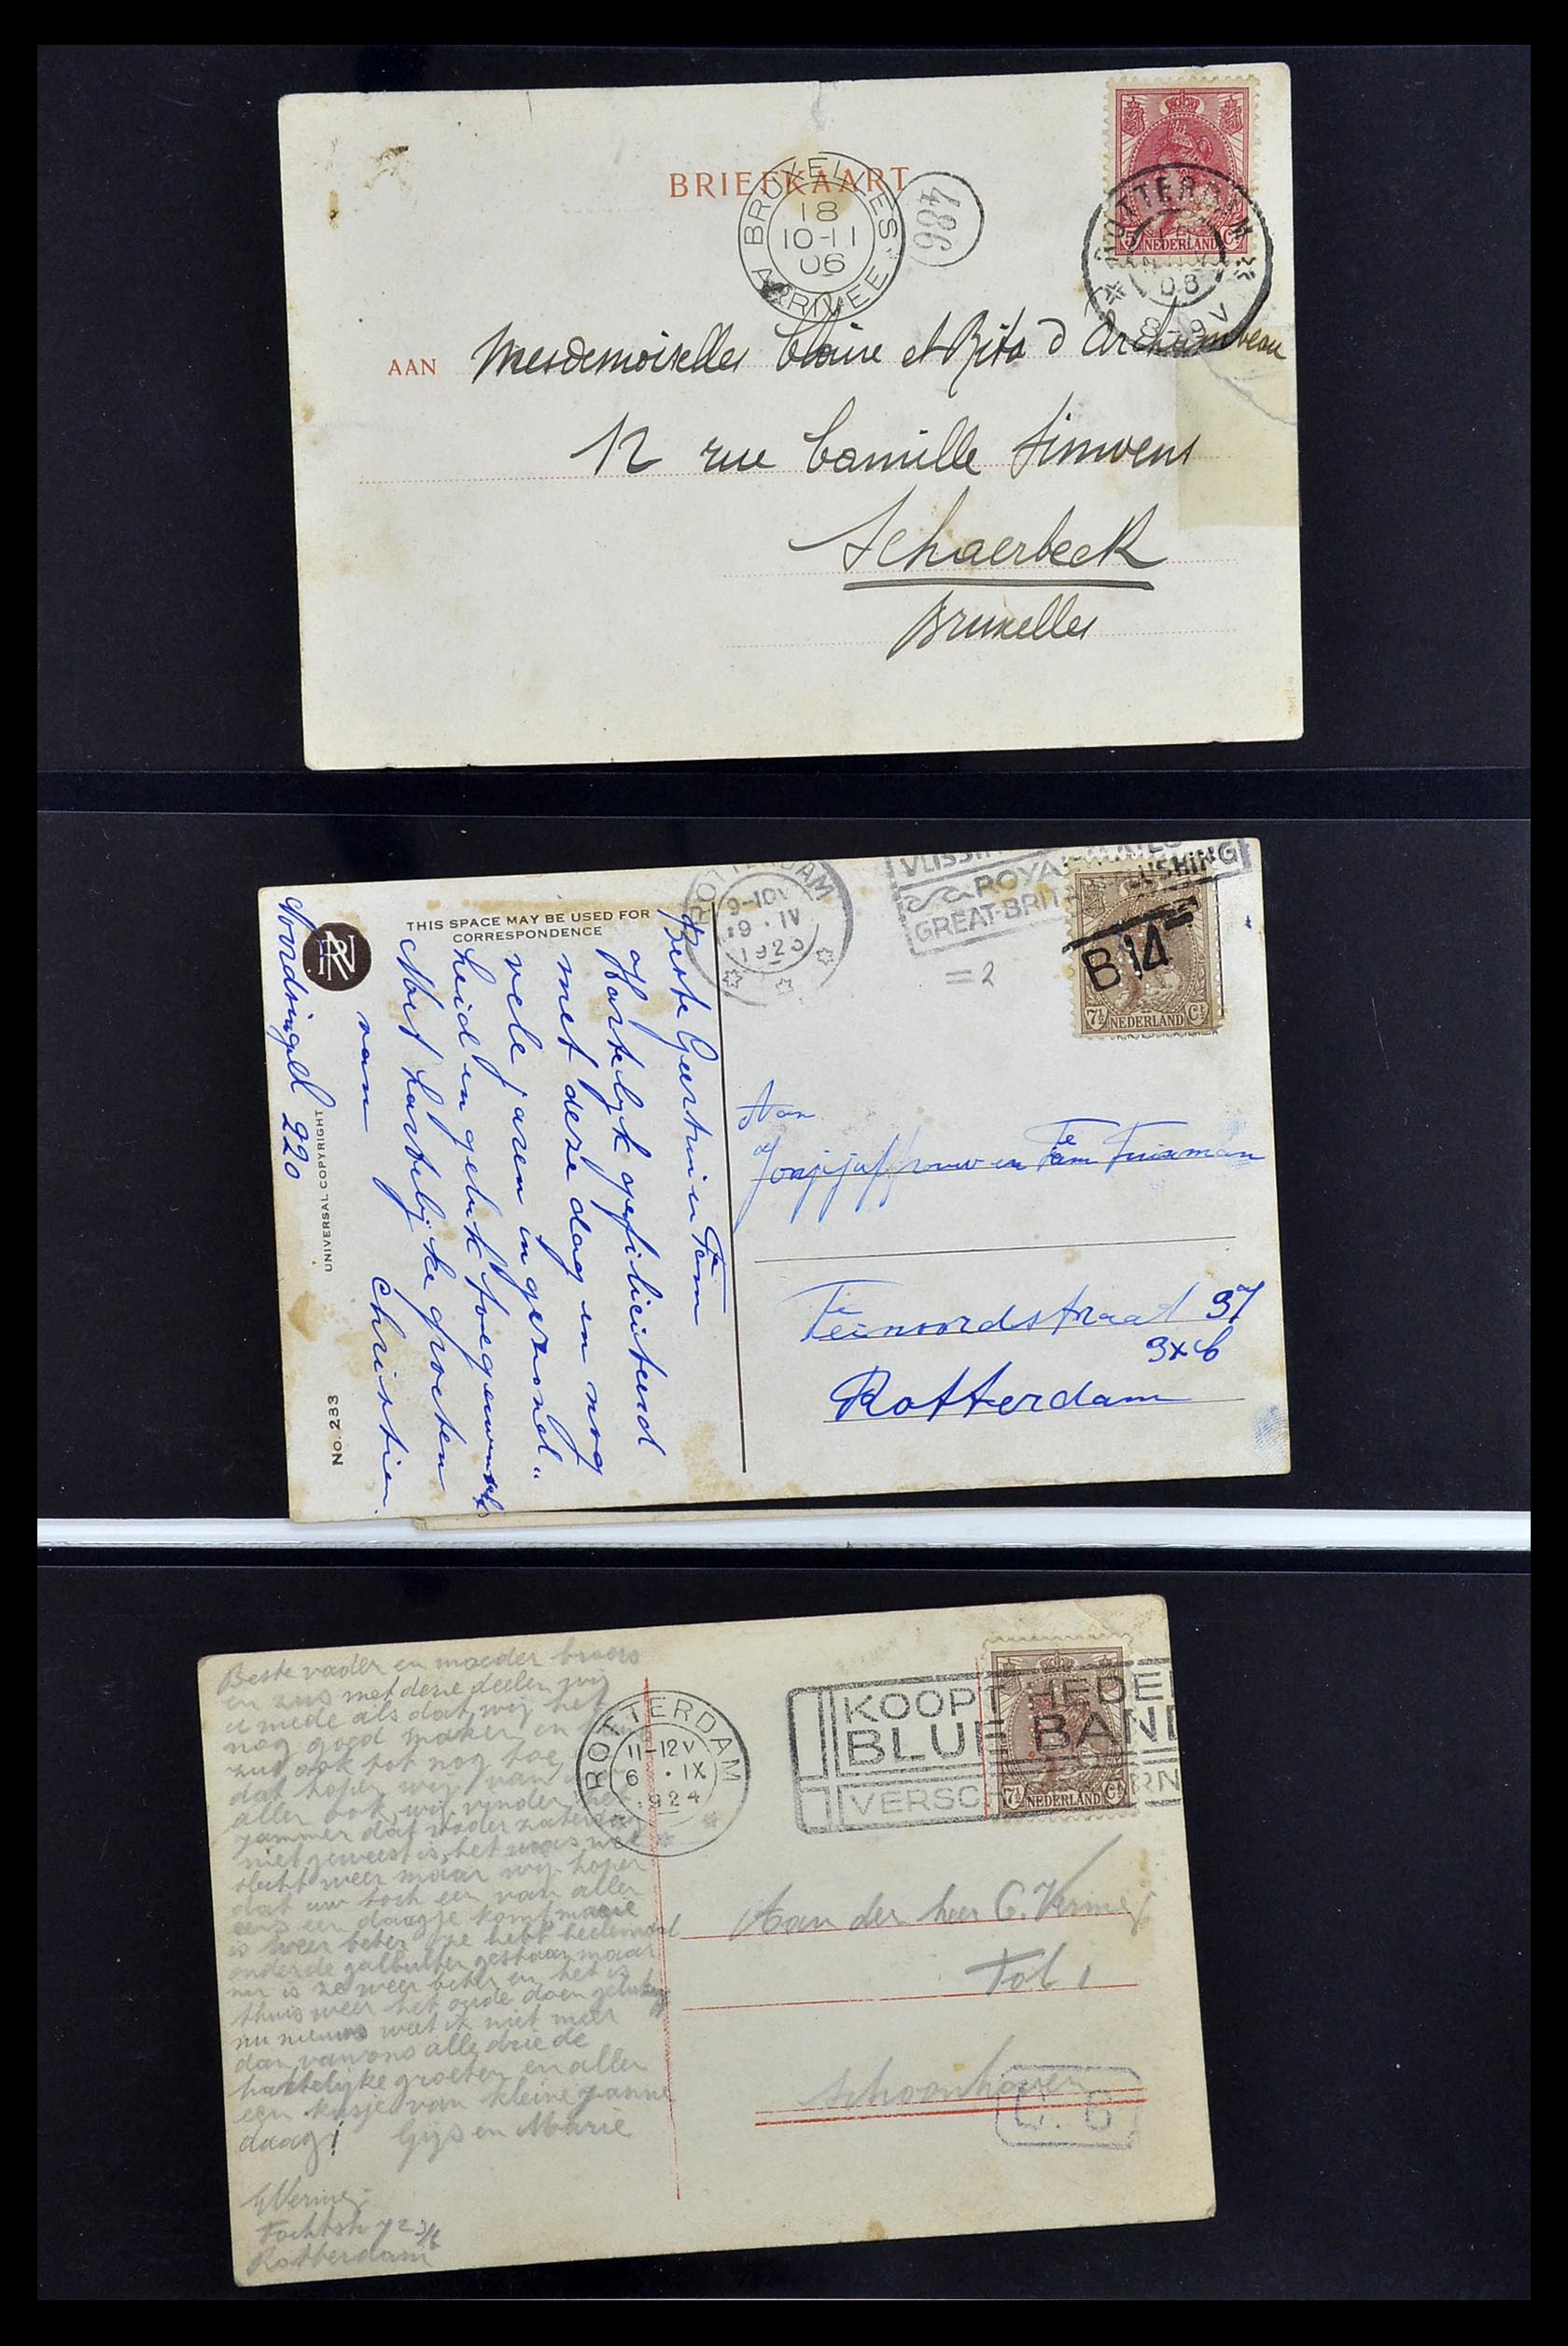 BRIEFKAART
BRUXELLES
18
10-11
06
ARRIVEE
486
ROTTERDAM
06
8-9V
NEDERLAND
AAN Mesdemoiselles Claire et Rita d'Archambeau
12 rue Camille Simoens
Schaerbeek
Bruxelles
THIS SPACE MAY BE USED FOR
CORRESPONDENCE
Beste Geertrui en Fam
Hartelijk gefiliciteerd
met deze dag en nog
vele jaren in gezond"
heid en geluk toegewenscht
Met hartelijke groeten
van Christien.
Noordsingel 220
UNIVERSAL COPYRIGHT
No. 233
ROTTERDAM
9-10V
19 . IV
192
ROYAL
GREAT-BRIT
FLUSHING
= 2
B 14
7½ NEDERLAND Ct
Aan
Feinoordstraat 37
3x b
Rotterdam
Beste vader en moeder broers
en zus met deze deelen wij
u mede als dat wij het
nog goed maken en
ook tot nog toe
dat hopen wij van
aller ook wij vinden het
jammer dat vader zaterdag
niet geweest is, het was
slecht weer maar wij hopen
dat uw toch een van allen
eens een daagje komt
is weer beter
onder de
nu is ze weer beter en het is
thuis weer het oude doen gelukkig
nu nieuws weet ik niet meer
dan van ons alle drie de
hartelijke groeten en allen
een kusje van kleine Janne
daag! Gijs en Marie
G Vermeij
Rotterdam
ROTTERDAM
11-12V
6 . IX
1924
KOOPT HEDE
BLUE BAND
VERSC RN
7½ NEDERLAND Ct
Aan den heer C. Vermeij
Tol 1
Schoonhoven